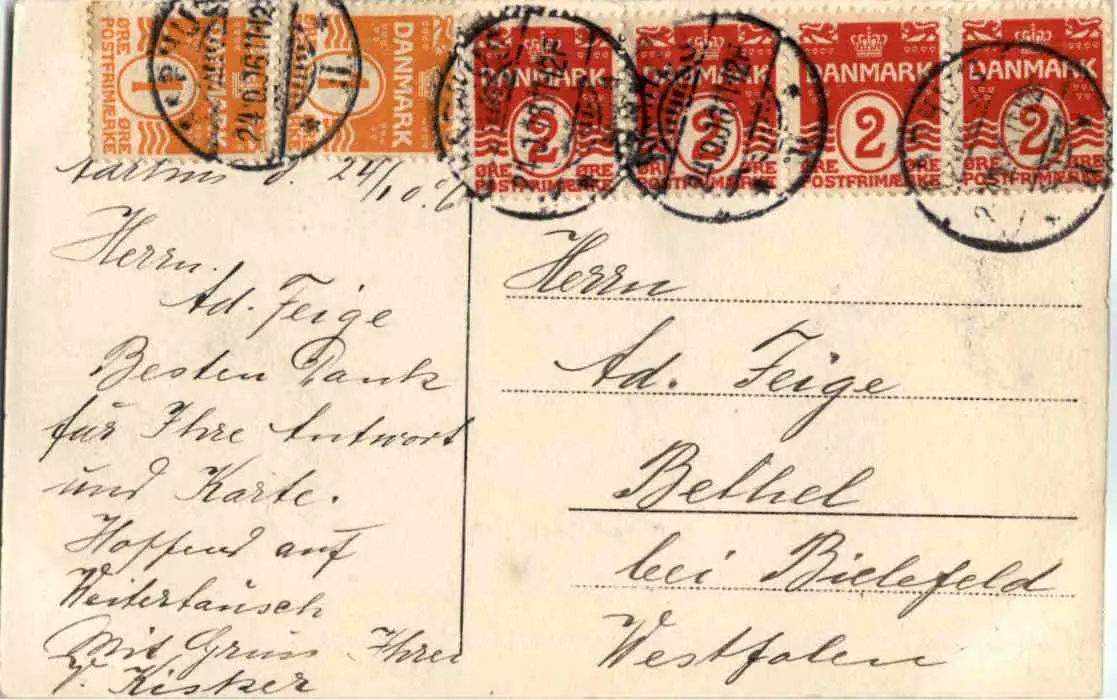 ØRE
POSTFRIMÆRKE
1
DANMARK
1
ØRE
POSTFRIMÆRKE
DANMARK
DANMARK
2
ØRE ØRE
POSTFRIMÆRKE
DANMARK
2
ØRE ØRE
POSTFRIMÆRKE
DANMARK
2
ØRE ØRE
POSTFRIMÆRKE
DANMARK
2
ØRE ØRE
POSTFRIMÆRKE
Aarhus d. 24/10 06
Herrn
Ad. Feige
Besten Dank
für Ihre Antwort
und Karte.
Hoffend auf
Weitertausch
Mit Gruss Ihrer
V. Kisker
Herrn
Ad. Feige
Bethel
bei Bielefeld
Westfalen